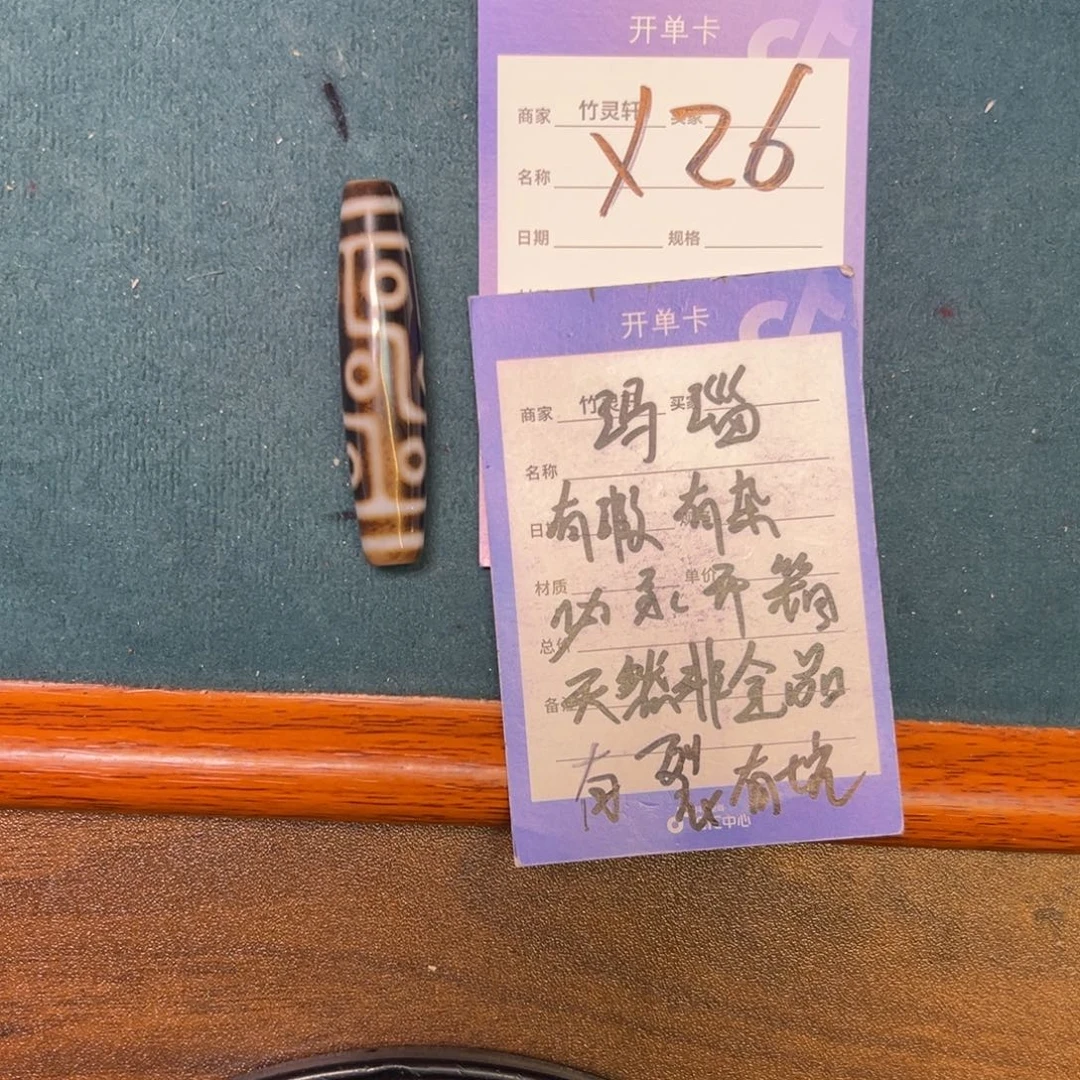 开单卡
商家 竹灵轩
X26
名称
日期 规格
开单卡
商家 竹 买家
玛瑙
名称
有瑕有杂
材质 单价
开箱
天然非全品
有裂有坑
中心